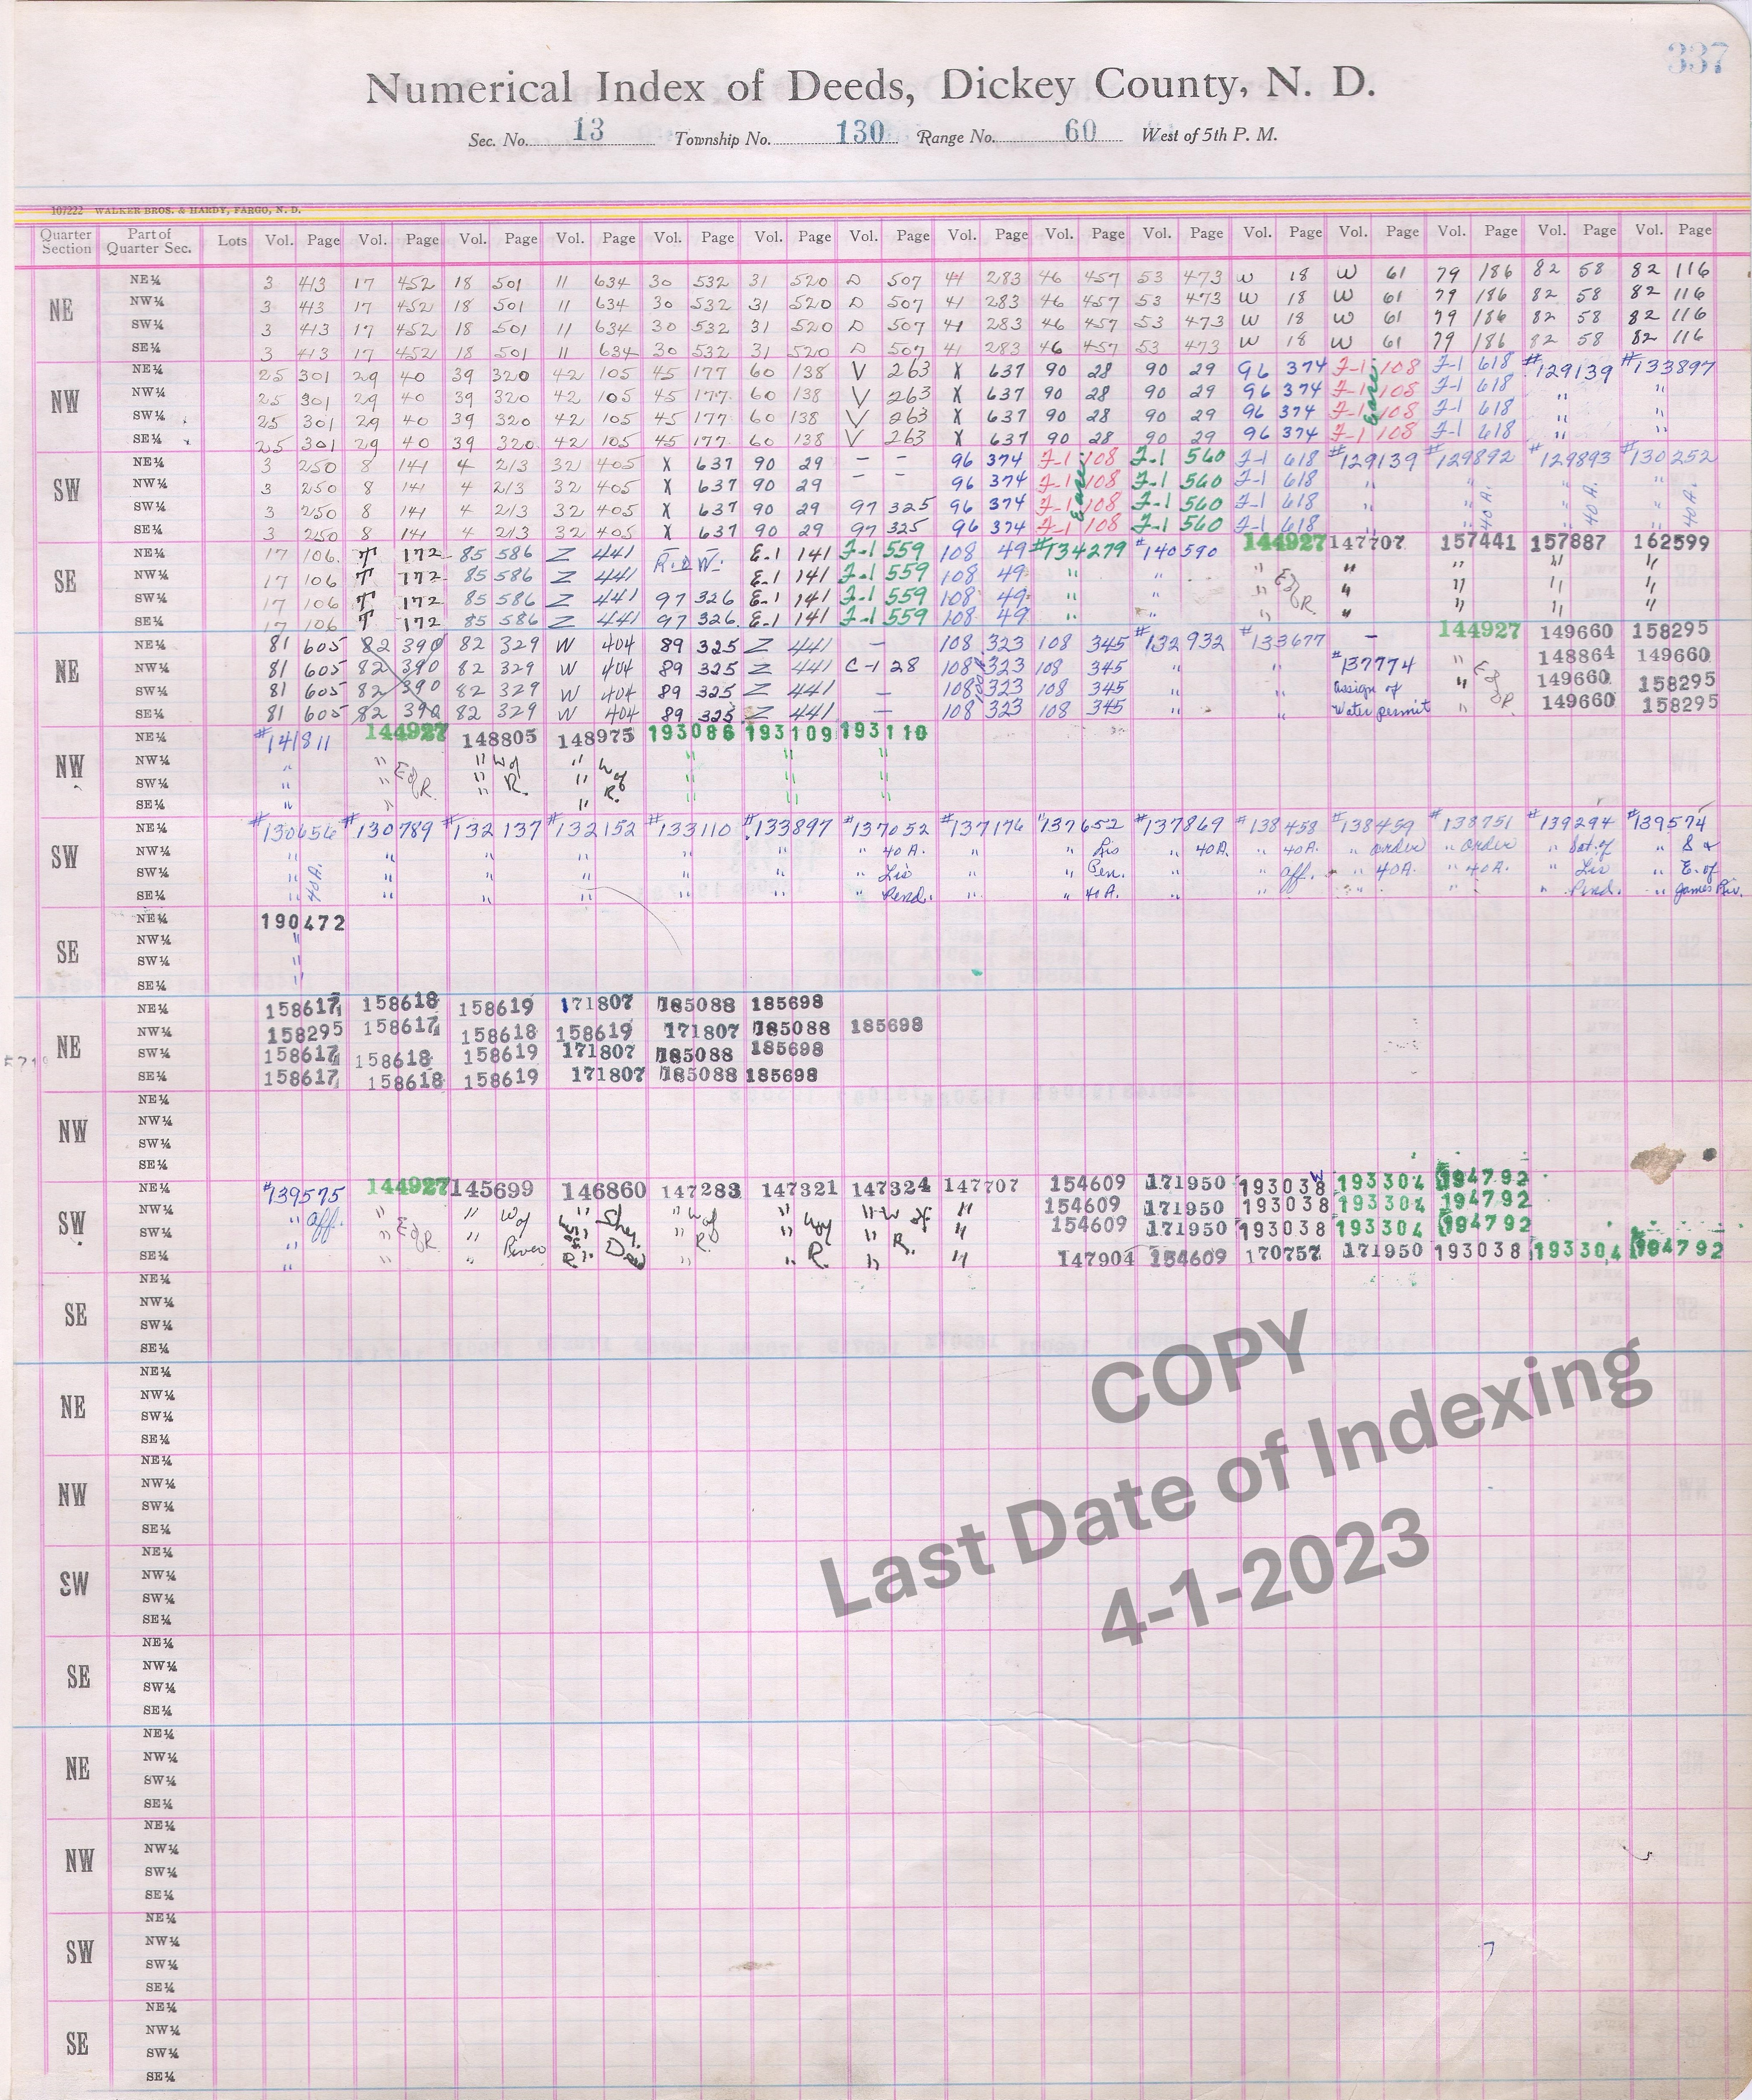 337
Numerical Index of Deeds, Dickey County, N. D.
Sec. No. 13 Township No. 130 Range No. 60 West of 5th P. M.
107222 WALKER BROS. & HARDY, FARGO, N. D.
Quarter Section Part of Quarter Sec. Lots Vol. Page Vol. Page Vol. Page Vol. Page Vol. Page Vol. Page Vol. Page Vol. Page Vol. Page Vol. Page Vol. Page Vol. Page Vol. Page Vol. Page Vol. Page
NE
NE¼ 3 413 17 452 18 501 11 634 30 532 31 520 D 507 41 283 46 457 53 473 W 18 W 61 79 186 82 58 82 116
NW¼ 3 413 17 452 18 501 11 634 30 532 31 520 D 507 41 283 46 457 53 473 W 18 W 61 79 186 82 58 82 116
SW¼ 3 413 17 452 18 501 11 634 30 532 31 520 D 507 41 283 46 457 53 473 W 18 W 61 79 186 82 58 82 116
SE¼ 3 413 17 452 18 501 11 634 30 532 31 520 D 507 41 283 46 457 53 473 W 18 W 61 79 186 82 58 82 116
NW
NE¼ 25 301 29 40 39 320 42 105 45 177 60 138 V 263 X 637 90 28 90 29 96 374 J-1 108 J-1 618 #129139 #133897
NW¼ 25 301 29 40 39 320 42 105 45 177 60 138 V 263 X 637 90 28 90 29 96 374 J-1 108 J-1 618 " "
SW¼ 25 301 29 40 39 320 42 105 45 177 60 138 V 263 X 637 90 28 90 29 96 374 J-1 108 J-1 618 " "
SE¼ 25 301 29 40 39 320 42 105 45 177 60 138 V 263 X 637 90 28 90 29 96 374 J-1 108 J-1 618 " "
SW
NE¼ 3 250 8 141 4 213 32 405 X 637 90 29 — — 96 374 J-1 108 J-1 560 J-1 618 #129139 #129892 #129893 #130252
NW¼ 3 250 8 141 4 213 32 405 X 637 90 29 — — 96 374 J-1 108 J-1 560 J-1 618 " " " "
SW¼ 3 250 8 141 4 213 32 405 X 637 90 29 97 325 96 374 J-1 108 J-1 560 J-1 618 " " 40A. " 40A. " 40A.
SE¼ 3 250 8 141 4 213 32 405 X 637 90 29 97 325 96 374 J-1 108 J-1 560 J-1 618 " " " "
SE
NE¼ 17 106 T 172 85 586 Z 441 R.o.W. E-1 141 J-1 559 108 49 #134279 #140590 144927 147707 157441 157887 162599
NW¼ 17 106 T 172 85 586 Z 441 E-1 141 J-1 559 108 49 " " " E of R. " " " "
SW¼ 17 106 T 172 85 586 Z 441 97 326 E-1 141 J-1 559 108 49 " " " " " " "
SE¼ 17 106 T 172 85 586 Z 441 97 326 E-1 141 J-1 559 108 49 " " " " " " "
NE
NE¼ 81 605 82 390 82 329 W 404 89 325 Z 441 — 108 323 108 345 #132932 #133677 — 144927 149660 158295
NW¼ 81 605 82 390 82 329 W 404 89 325 Z 441 C-1 28 108 323 108 345 " " #137774 " E of R. 148864 149660
SW¼ 81 605 82 390 82 329 W 404 89 325 Z 441 — 108 323 108 345 " " Assign of " 149660 158295
SE¼ 81 605 82 390 82 329 W 404 89 325 Z 441 — 108 323 108 345 " " Water permit " 149660 158295
NW
NE¼ #141811 144927 148805 148975 193086 193109 193110
NW¼ " " E of R. " W of " W of " " "
SW¼ " " " R. " R. " " "
SE¼ " " " " " "
SW
NE¼ #130656 #130789 #132137 #132152 #133110 #133897 #137052 #137176 #137652 #137869 #138458 #138459 #138751 #139294 #139574
NW¼ " 40A. " " " " " " 40A. " " Lis " 40A. " 40A. " order " order " Sat. of " S &
SW¼ " " " " " " " Lis " " Pen. " " aff. " 40A. " 40A. " Lis " E. of
SE¼ " " " " " " " Pend. " " 40A. " " " " " Pend. " James Riv.
SE
NE¼ 190472
NW¼ "
SW¼ "
SE¼ "
NE
NE¼ 158617 158618 158619 171807 185088 185698
NW¼ 158295 158617 158618 158619 171807 185088 185698
SW¼ 158617 158618 158619 171807 185088 185698
SE¼ 158617 158618 158619 171807 185088 185698
NW
NE¼
NW¼
SW¼
SE¼
SW
NE¼ #139575 144927 145699 146860 147283 147321 147324 147707 154609 171950 193038 W 193304 194792
NW¼ " aff. " E of R. " W of " " W of " W of " W of " 154609 171950 193038 193304 194792
SW¼ " " " River " R. " R. " R. " 154609 171950 193038 193304 194792
SE¼ " " " " " " " " 147904 154609 170757 171950 193038 193304 194792
SE
NE¼
NW¼
SW¼
SE¼
NE
NE¼
NW¼
SW¼
SE¼
NW
NE¼
NW¼
SW¼
SE¼
SW
NE¼
NW¼
SW¼
SE¼
SE
NE¼
NW¼
SW¼
SE¼
NE
NE¼
NW¼
SW¼
SE¼
NW
NE¼
NW¼
SW¼
SE¼
SW
NE¼
NW¼
SW¼
SE¼
SE
NE¼
NW¼
SW¼
SE¼
COPY
Last Date of Indexing
4-1-2023